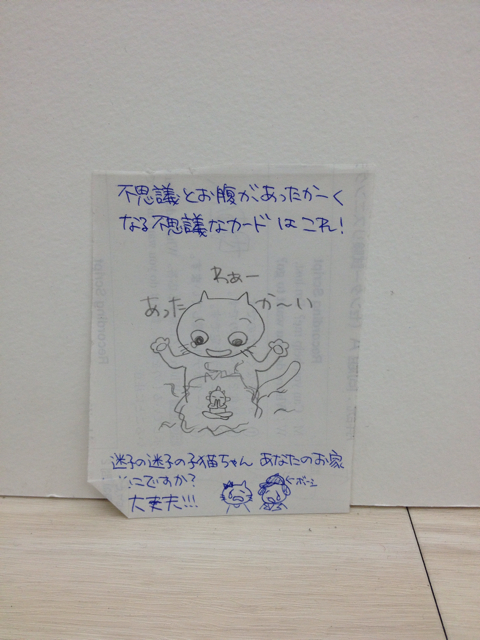 不思議とお腹があったかーく
なる不思議なカードはこれ！
わぁー
あったか～い
迷子の迷子の子猫ちゃん あなたのお家
どこですか？
←ボーシ
大丈夫!!!